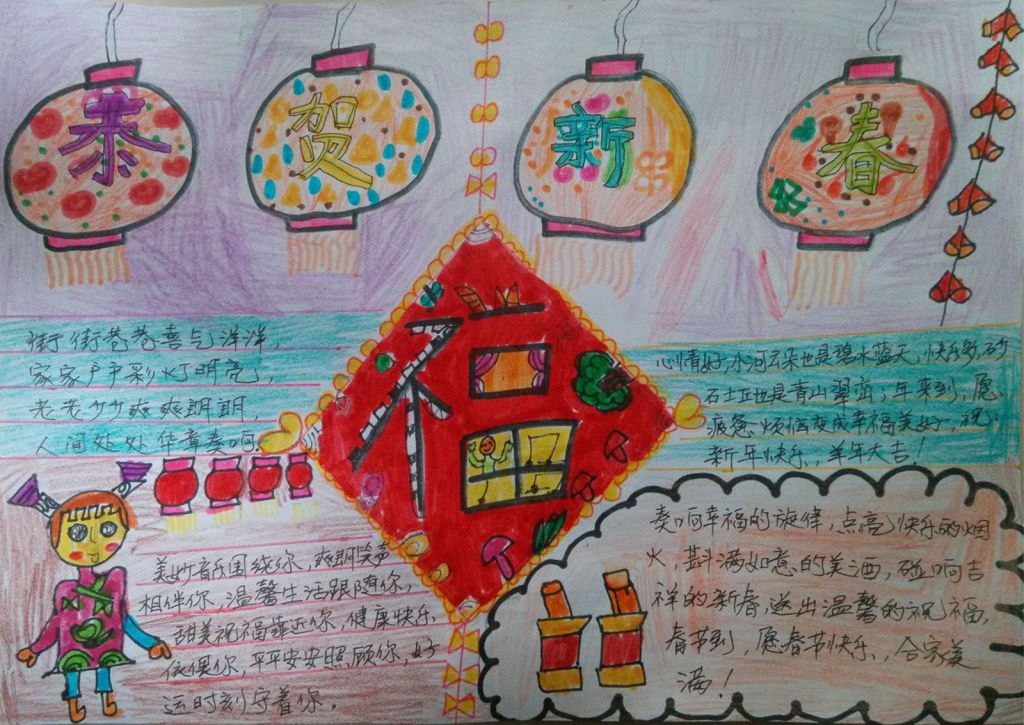 恭贺新春
福
街街巷巷喜气洋洋,
家家户户彩灯明亮,
老老少少爽爽朗朗,
人间处处华章奏响
心情好,小河云朵也是碧水蓝天,快乐多,砂
石土丘也是青山翠峦;年来到,愿
疲惫烦恼变成幸福美好,祝
新年快乐,羊年大吉!
美妙音乐围绕你,爽朗笑声
相伴你,温馨生活跟随你,
甜美祝福靠近你,健康快乐
依偎你,平平安安照顾你,好
运时刻守着你.
奏响幸福的旋律,点亮快乐的烟
火,斟满如意的美酒,碰响吉
祥的新春,送出温馨的祝福,
春节到,愿春节快乐,合家美
满!